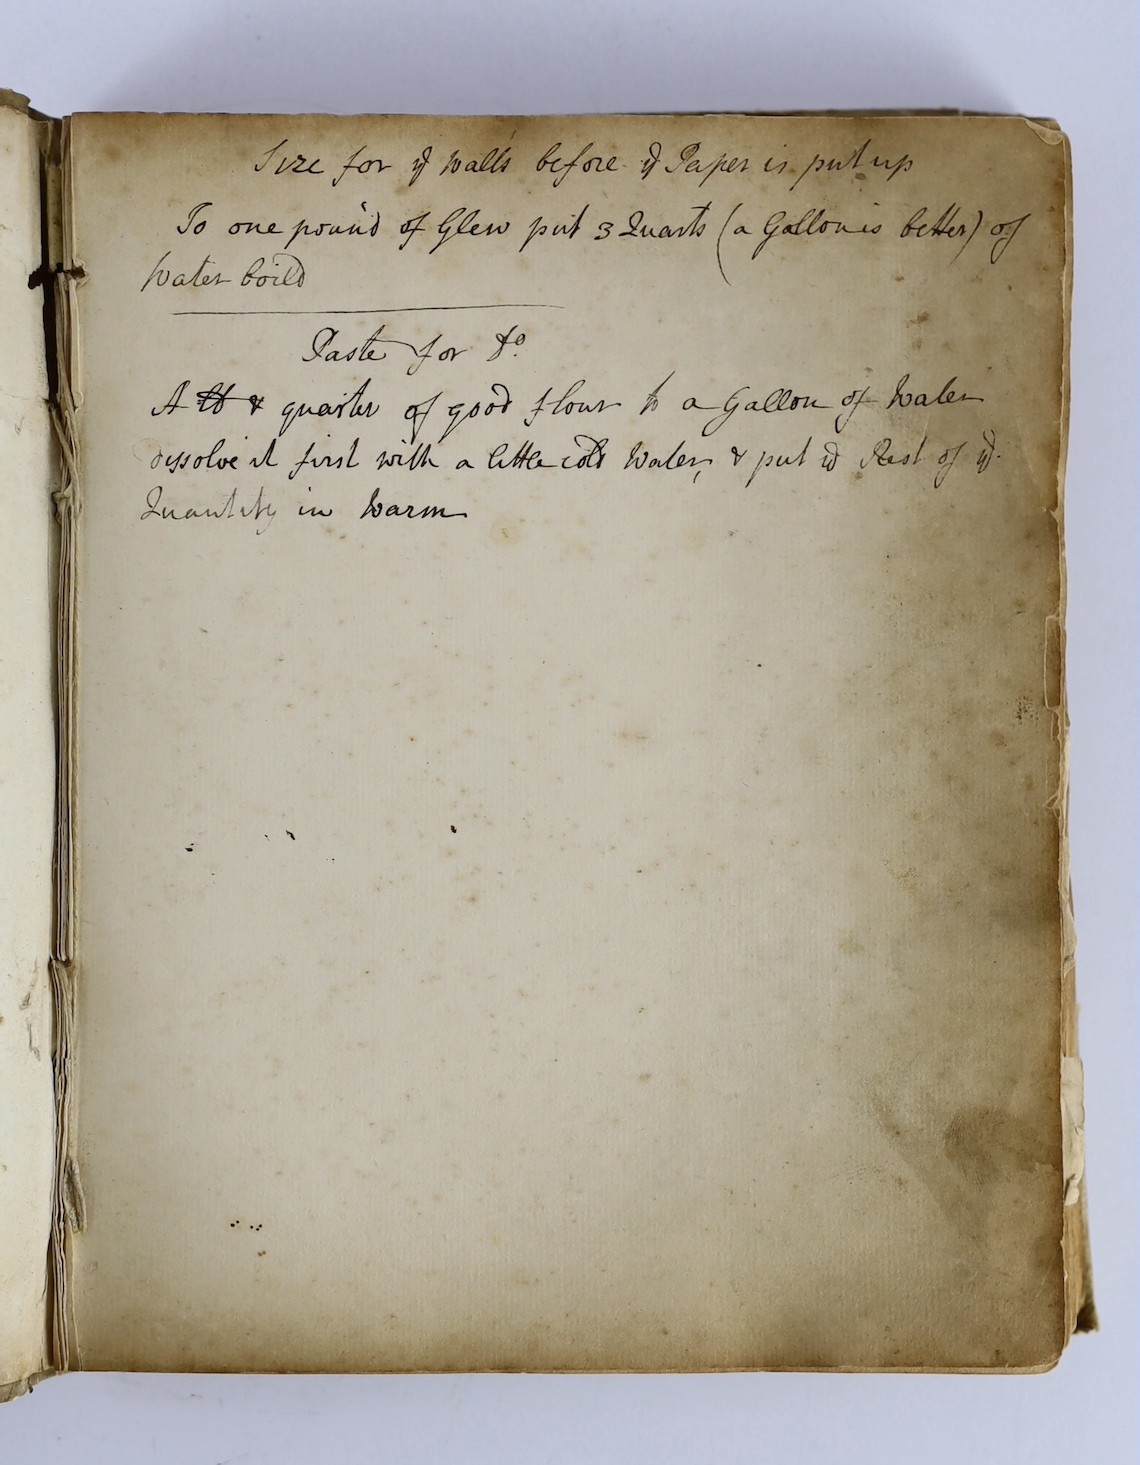 Size for ye Walls before ye Paper is put up
To one pound of Glew put 3 Quarts (a Gallon is better) of
Water boild
Paste for Do.
A lb & quarter of good flour to a Gallon of Water
dissolve it first with a little cold Water, & put ye Rest of ye
Quantity in Warm